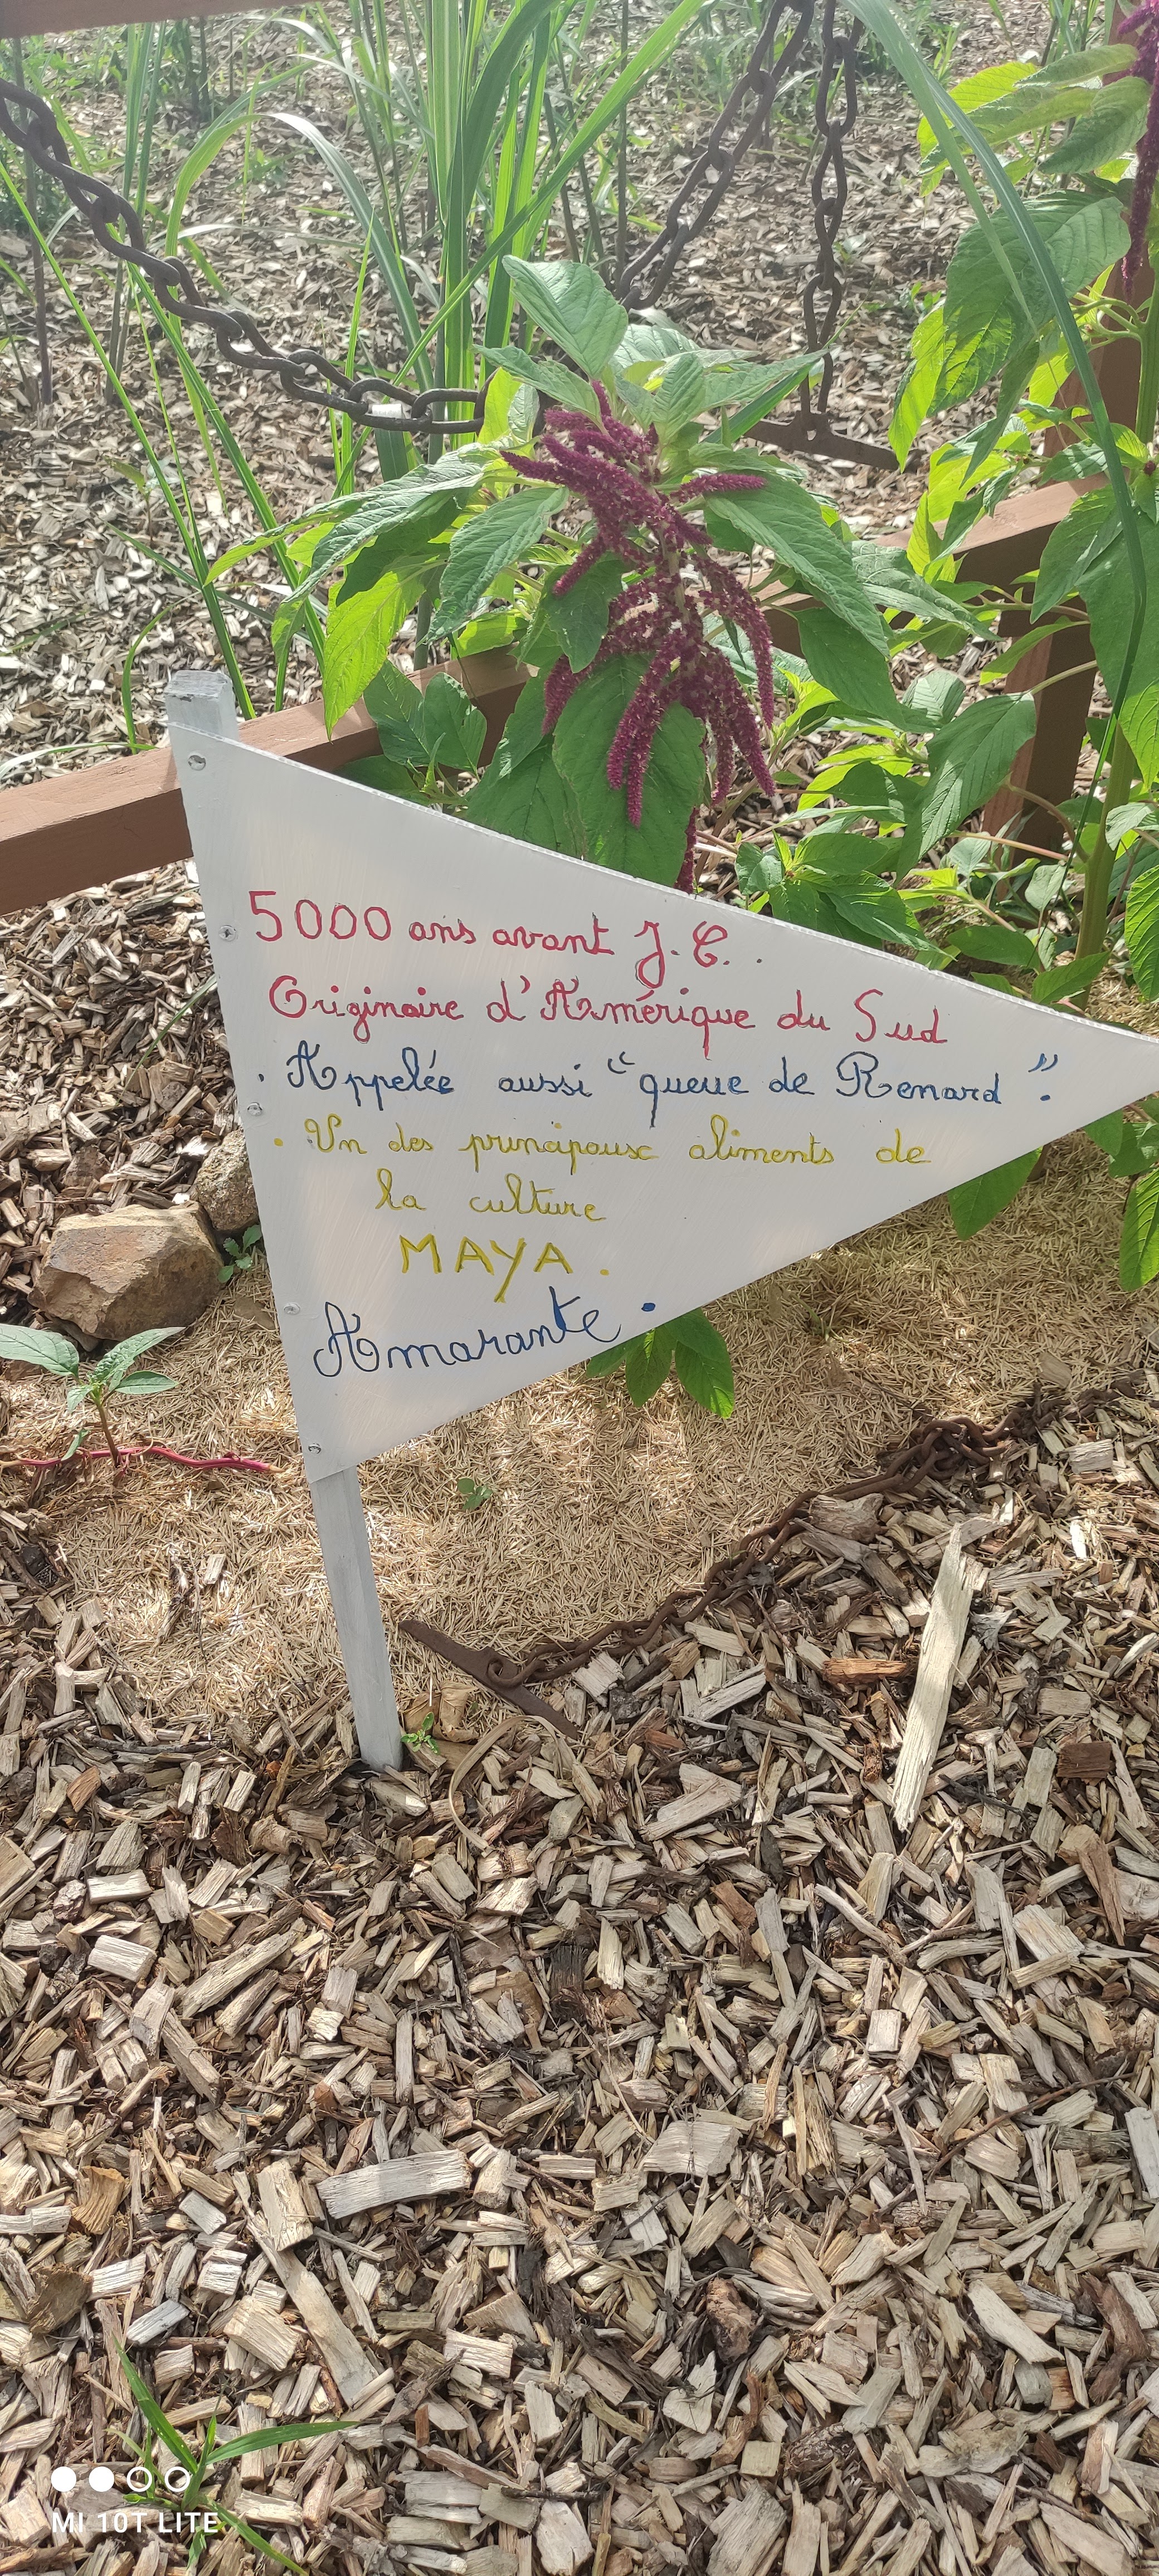 5000 ans avant J.C. .
Originaire d'Amérique du Sud
. Appelée aussi "queue de Renard".
. Un des principaux aliments de
la culture
MAYA.
Amarante.
MI 10T LITE